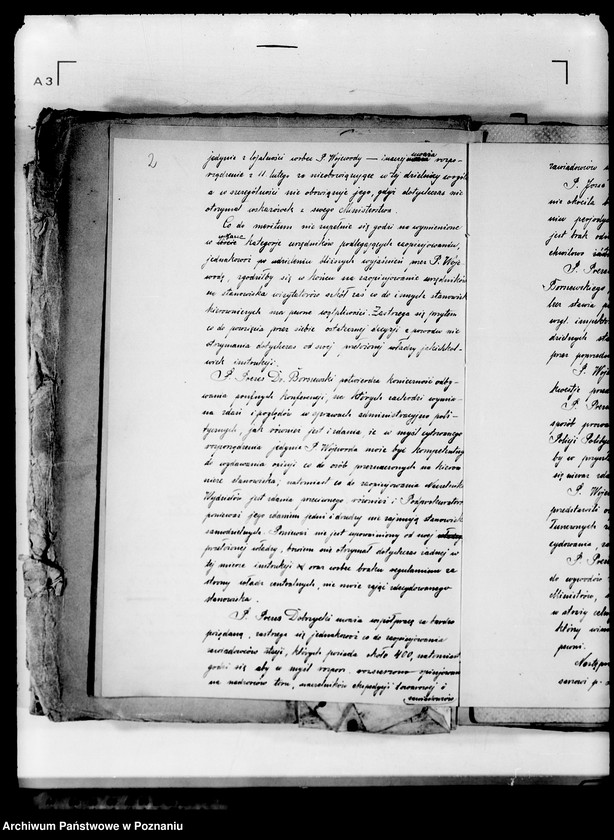 A3
2
jedynie z lojalności wobec P. Wojewody — inaczej uważa rozpo-
rządzenie z 11 lutego za nieobowiązujące w tej dzielnicy wogóle
a w szczególności nie obowiązuje jego, gdyż dotychczas nie
otrzymał wskazówek z swego Ministerstwa.
Co do meritum nie zupełnie się godzi na wymienione
w kategorje urzędników podlegających zaopinjowaniu,
jednakowoż po udzieleniu bliższych wyjaśnień przez P. Woje-
wodę, zgodziłby się w końcu na zaopinjowanie urzędników
na stanowiska wizytatorów szkół zaś co do innych stanowisk
kierowniczych ma pewne wątpliwości. Zastrzega się przytem
co do powzięcia przez siebie ostatecznej decyzji z powodu nie
otrzymania dotychczas od swej przełożonej władzy jakichkol-
wiek instrukcji.
P. Prezes Dr. potwierdza konieczność odby-
wania poufnych konferencji, na których zachodzi wymia-
na zdań i poglądów w sprawach administracyjno poli-
tycznych, jak również jest zdania, że w myśl cytowanego
rozporządzenia jedynie P. Wojewoda może być kompetentny
do wydawania opinji co do osób przeznaczonych na kierow-
nicze stanowiska; natomiast co do zaopinjowania Naczelników
Wydziałów jest zdania przeciwnego, również i Podprokuratorów
ponieważ jego zdaniem jedni i drudzy nie zajmują stanowisk
samodzielnych. Ponieważ nie jest upoważniony od swej
przełożonej władzy, bowiem nie otrzymał dotychczas żadnej w
tej mierze instrukcji oraz wobec braku regulaminu ze
strony władz centralnych, nie może zająć zdecydowanego
stanowiska.
P. Prezes Dobrzycki uważa współpracę za bardzo
pożądaną, zastrzega się jednakowoż co do zaopinjowania
zawiadowców stacji, których posiada około 400, natomiast
godzi się aby w myśl rozpor. opinjowani
na nadzorców toru, naczelników ekspedycji towarowej i
zawiadowców
P. Prezes
nie określa
jest brak
chwilowo
P. Prezes
Borszewskiego
bez stawia
wzgl.
dzielnych
przez
P. Woj
kwestję
P. Prezes
sposób
Policji
by w
się nieraz
P. Woje
przedstawili
P. Prezes
do wywodów
Ministrów,
który
pewni.
Następ
Archiwum Państwowe w Poznaniu